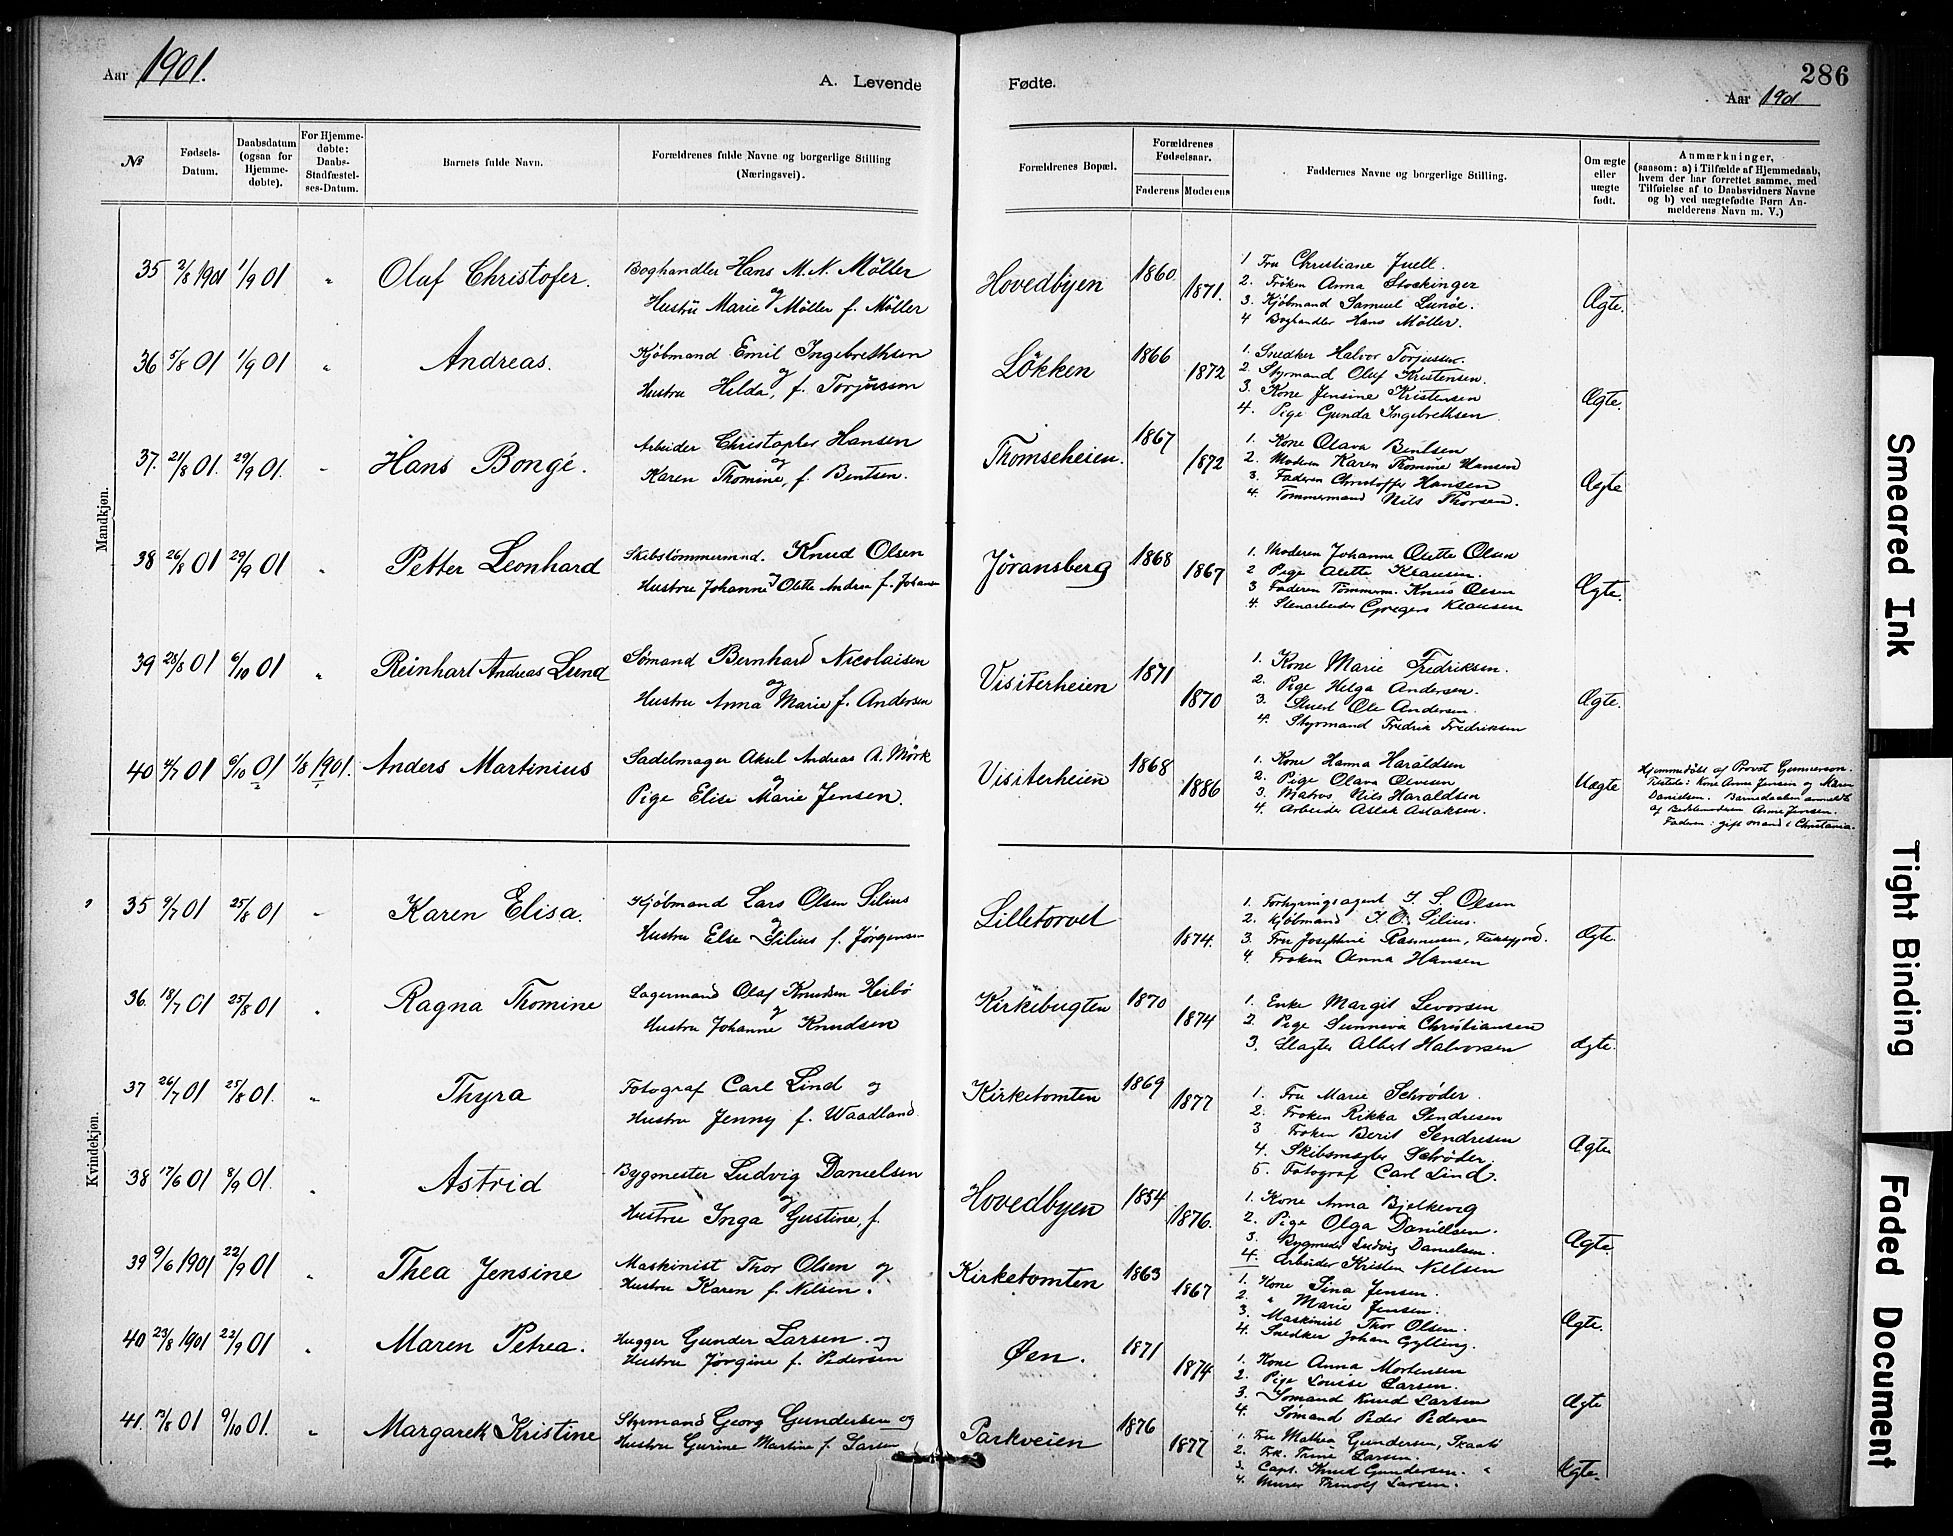 Aar 1901.
A. Levende Fødte.
286
Aar 1901
№
Fødsels-Datum.
Daabsdatum (ogsaa for Hjemmedøbte).
For Hjemmedøbte: Daabs-Stadfæstelses-Datum.
Barnets fulde Navn.
Forældrenes fulde Navne og borgerlige Stilling (Næringsvei).
Forældrenes Bopæl.
Forældrenes Fødselsaar.
Faderens Moderens
Faddernes Navne og borgerlige Stilling.
Om ægte eller uægte født.
Anmærkninger,
(saasom: a) i Tilfælde af Hjemmedaab,
hvem der har forrettet samme, med
Tilføielse af to Daabsvidners Navne
og b) ved uægtefødte Børn Anmelderens Navn m. V.)
Mandkjøn.
35 2/8 1901 1/9 01 " Oluf Christofer. Boghandler Hans M. N. Møller og
Hustru Marie Møller f. Møller
Hovedbyen 1860 1871.
1 Fru Christiane Juell.
2. Frøken Anna Stockinger
3. Kjøbmand Samuel Lunøe.
4 Boghandler Hans Møller.
Ægte.
36 5/8 01 1/9 01 " Andreas. Kjøbmand Emil Ingebrethsen og
Hustru Hilda, f. Torjussen
Løkken 1866 1872
1. Snedker Halvor Torjussen.
2. Styrmand Oluf Kristensen.
3. Kone Jensine Kristensen
4. Pige Gunda Ingebrethsen.
Ægte.
37. 21/8 01. 29/9 01. " Hans Bongé. Arbeider Christopher Hansen og
Karen Thomine, f. Bentsen.
Thomseheien. 1867 1872
1. Kone Olava Bentsen
2. Moderen Karen Thomine Hansen
3. Faderen Christoffer Hansen
4. Tømmermand Nils Thorsen.
Ægte
38 26/8 01 29/9 01 " Petter Leonhard Skibstømmermand. Knud Olsen og
Hustru Johanne Olette Andrea f.
Jøransberg 1868 1867
1. Moderen Johanne Olette Olsen
2 Pige Alette Klausen.
3 Faderen Tømmerm. Knud Olsen
4. Stenarbeider Gregers Klausen
Ægte.
39 28/8 01 6/10 01 " Reinhart Andreas Lund Sømand Bernhard Nicolaisen og
Hustru Anna Marie f. Andersen
Visiterheien 1871 1870
1. Kone Marie Fredriksen.
2. Pige Helga Andersen.
3. Stuert Ole Andersen.
4. Styrmand Fredrik Fredriksen
Ægte.
40 4/7 01 6/10 01 1/8 1901. Anders Martinius Sadelmager Aksel Andreas A. Mørk og
Pige Elise Marie Jensen.
Visiterheien 1868 1886
1. Kone Hanna Haraldsen
2. Pige Olava Olvesen
3. Matros Nils Haraldsen
4. Arbeider Aslak Aslaksen.
Uægte
Hjemmedøbt af Provst Gunnerson.
Testib: Kone Anne Jensen og Maren
Danielsen. Barnedaaben anmeldt
af Bedstemoderen Anne Jensen.
Faderen: gift mand i Christiania.
Kvindekjøn.
35 9/7 01 25/8 01 " Karen Elisa. Kjøbmand Lars Olsen Silius og
Hustru Else Silius f. Jørgensen
Lilletorvet 1874.
1. Forhyringsagent J. S. Olsen
2. Kjøbmand J. O. Silius.
3. Fru Josephine Rasmussen,
4. Frøken Anna Hansen
Ægte.
36. 18/7 01 25/8 01 " Ragna Thomine Lagermand Olaf Knudsen Heibø og
Hustru Johanne Knudsen
Kirkebugten 1870 1874
1. Enke Margit Levorsen
2. Pige Sunneva Christiansen
3. Slagter Albert Halvorsen
Ægte.
37 26/7 01 25/8 01. " Thyra Fotograf Carl Lind og
Hustru Jenny f. Waadland.
Kirketomten 1869 1877
1. Fru Marie Schrøder.
2. Frøken Rikka Sendresen
3 Frøken Berit Sendresen
4. Skibsmægler Schrøder.
5. Fotograf Carl Lind.
Ægte
38 17/6 01 8/9 01. " Astrid Bygmester Ludvig Danielsen og
Hustru Inga Gustine, f.
Hovedbyen 1854 1876.
1. Kone Anna Bjelkevig
2. Pige Olga Danielsen.
3. Bygmester Ludvig Danielsen.
4. Arbeider Kristen Nielsen
Ægte
39 9/6 1901 22/9 01 " Thea Jensine Maskinist Thor Olsen og
Hustru Karen f. Nilsen.
Kirketomten 1863 1867
1. Kone Sina Jensen.
2. " Marie Jensen.
3. Maskinist Thor Olsen.
4. Snedker Johan Gylling.
Ægte.
40 23/8 1901 22/9 01 " Maren Petrea. Hugger Gunder Larsen og
Hustru Jørgine f. Pedersen
Øen. 1871 1874
1. Kone Anna Mortensen
2. Pige Louise Larsen.
3. Sømand Knud Larsen
4. Sømand Peder Pedersen
Ægte
41. 7/8 01 9/10 01. " Margareth Kristine Styrmand Georg Gundersen og
Hustru Gurine Martine f. Larsen
Parkveien 1876 1877
1. Fru Mathea Gundersen, Skaatø
2. Frk. Trine Larsen.
3. Capt. Knud Gundersen. "
4. Murer Larsen.
Ægte.
Smeared Ink
Tight Binding
Faded Document